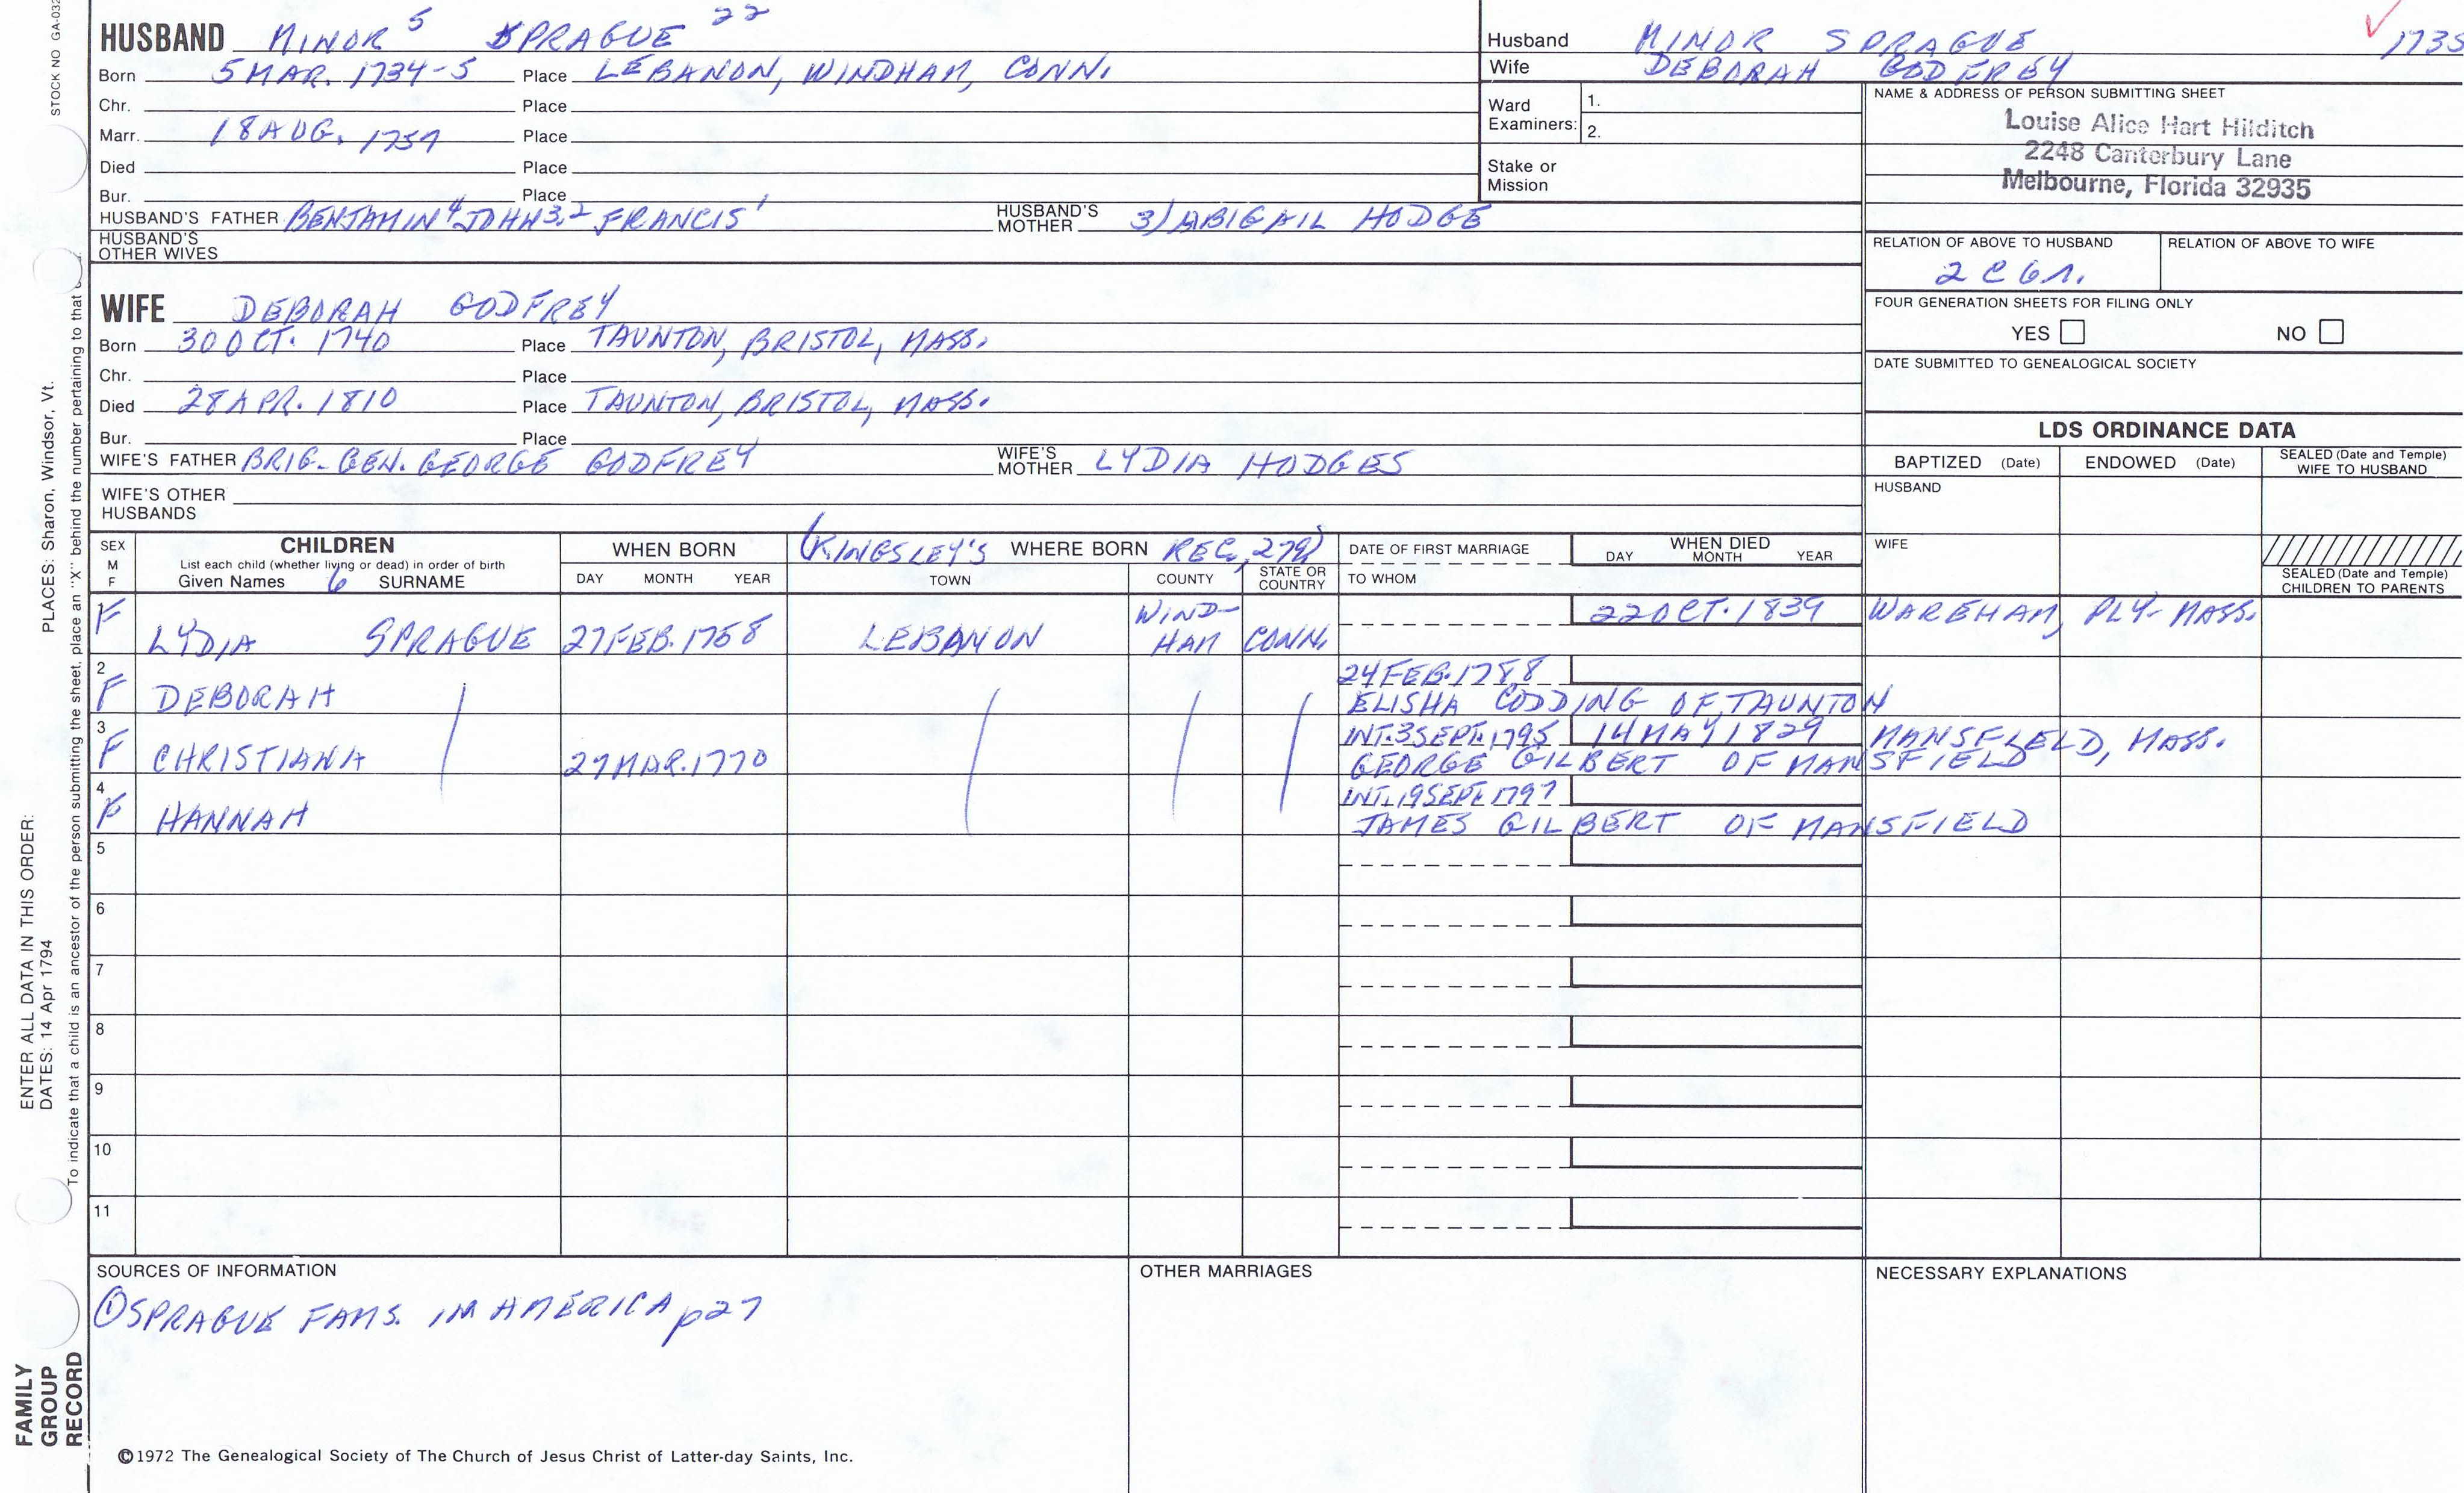 STOCK NO GA-032
HUSBAND MINOR 5 SPRAGUE 22
Born 5 MAR. 1734-5 Place LEBANON, WINDHAM, CONN.
Chr. Place
Marr. 18 AUG. 1757 Place
Died Place
Bur. Place
HUSBAND'S FATHER BENJAMIN 4 JOHN 3,2 FRANCIS 1 HUSBAND'S MOTHER 3) ABIGAIL HODGE
HUSBAND'S OTHER WIVES
Husband MINOR SPRAGUE ✓ 1735
Wife DEBORAH GODFREY
Ward Examiners: 1.
2.
Stake or Mission
NAME & ADDRESS OF PERSON SUBMITTING SHEET
Louise Alice Hart Hilditch
2248 Canterbury Lane
Melbourne, Florida 32935
RELATION OF ABOVE TO HUSBAND RELATION OF ABOVE TO WIFE
2 C 6 r.
FOUR GENERATION SHEETS FOR FILING ONLY
YES NO
DATE SUBMITTED TO GENEALOGICAL SOCIETY
WIFE DEBORAH GODFREY
Born 30 OCT. 1740 Place TAUNTON, BRISTOL, MASS.
Chr. Place
Died 28 APR. 1810 Place TAUNTON, BRISTOL, MASS.
Bur. Place
WIFE'S FATHER BRIG. GEN. GEORGE GODFREY WIFE'S MOTHER LYDIA HODGES
WIFE'S OTHER HUSBANDS
LDS ORDINANCE DATA
BAPTIZED (Date) ENDOWED (Date) SEALED (Date and Temple) WIFE TO HUSBAND
HUSBAND
WIFE
SEALED (Date and Temple) CHILDREN TO PARENTS
SEX M F CHILDREN WHEN BORN (KINGSLEY'S WHERE BORN REC, 279) DATE OF FIRST MARRIAGE WHEN DIED
List each child (whether living or dead) in order of birth
Given Names 6 SURNAME DAY MONTH YEAR TOWN COUNTY STATE OR COUNTRY TO WHOM DAY MONTH YEAR
1 F LYDIA SPRAGUE 27 FEB. 1758 LEBANON WIND-HAM CONN. 22 OCT. 1839 WAREHAM, PLY- MASS.
2 F DEBORAH 24 FEB. 1788
ELISHA CODDING OF TAUNTON
3 F CHRISTIANA 27 MAR. 1770 INT. 3 SEPT. 1795 14 MAY 1829 MANSFIELD, MASS.
GEORGE GILBERT OF MANSFIELD
4 F HANNAH INT. 19 SEPT. 1797
JAMES GILBERT OF MANSFIELD
5
6
7
8
9
10
11
SOURCES OF INFORMATION
① SPRAGUE FAMS. IN AMERICA p27
OTHER MARRIAGES
NECESSARY EXPLANATIONS
©1972 The Genealogical Society of The Church of Jesus Christ of Latter-day Saints, Inc.
ENTER ALL DATA IN THIS ORDER:
DATES: 14 Apr 1794
PLACES: Sharon, Windsor, Vt.
To indicate that a child is an ancestor of the person submitting the sheet, place an "X" behind the number pertaining to that
FAMILY
GROUP
RECORD